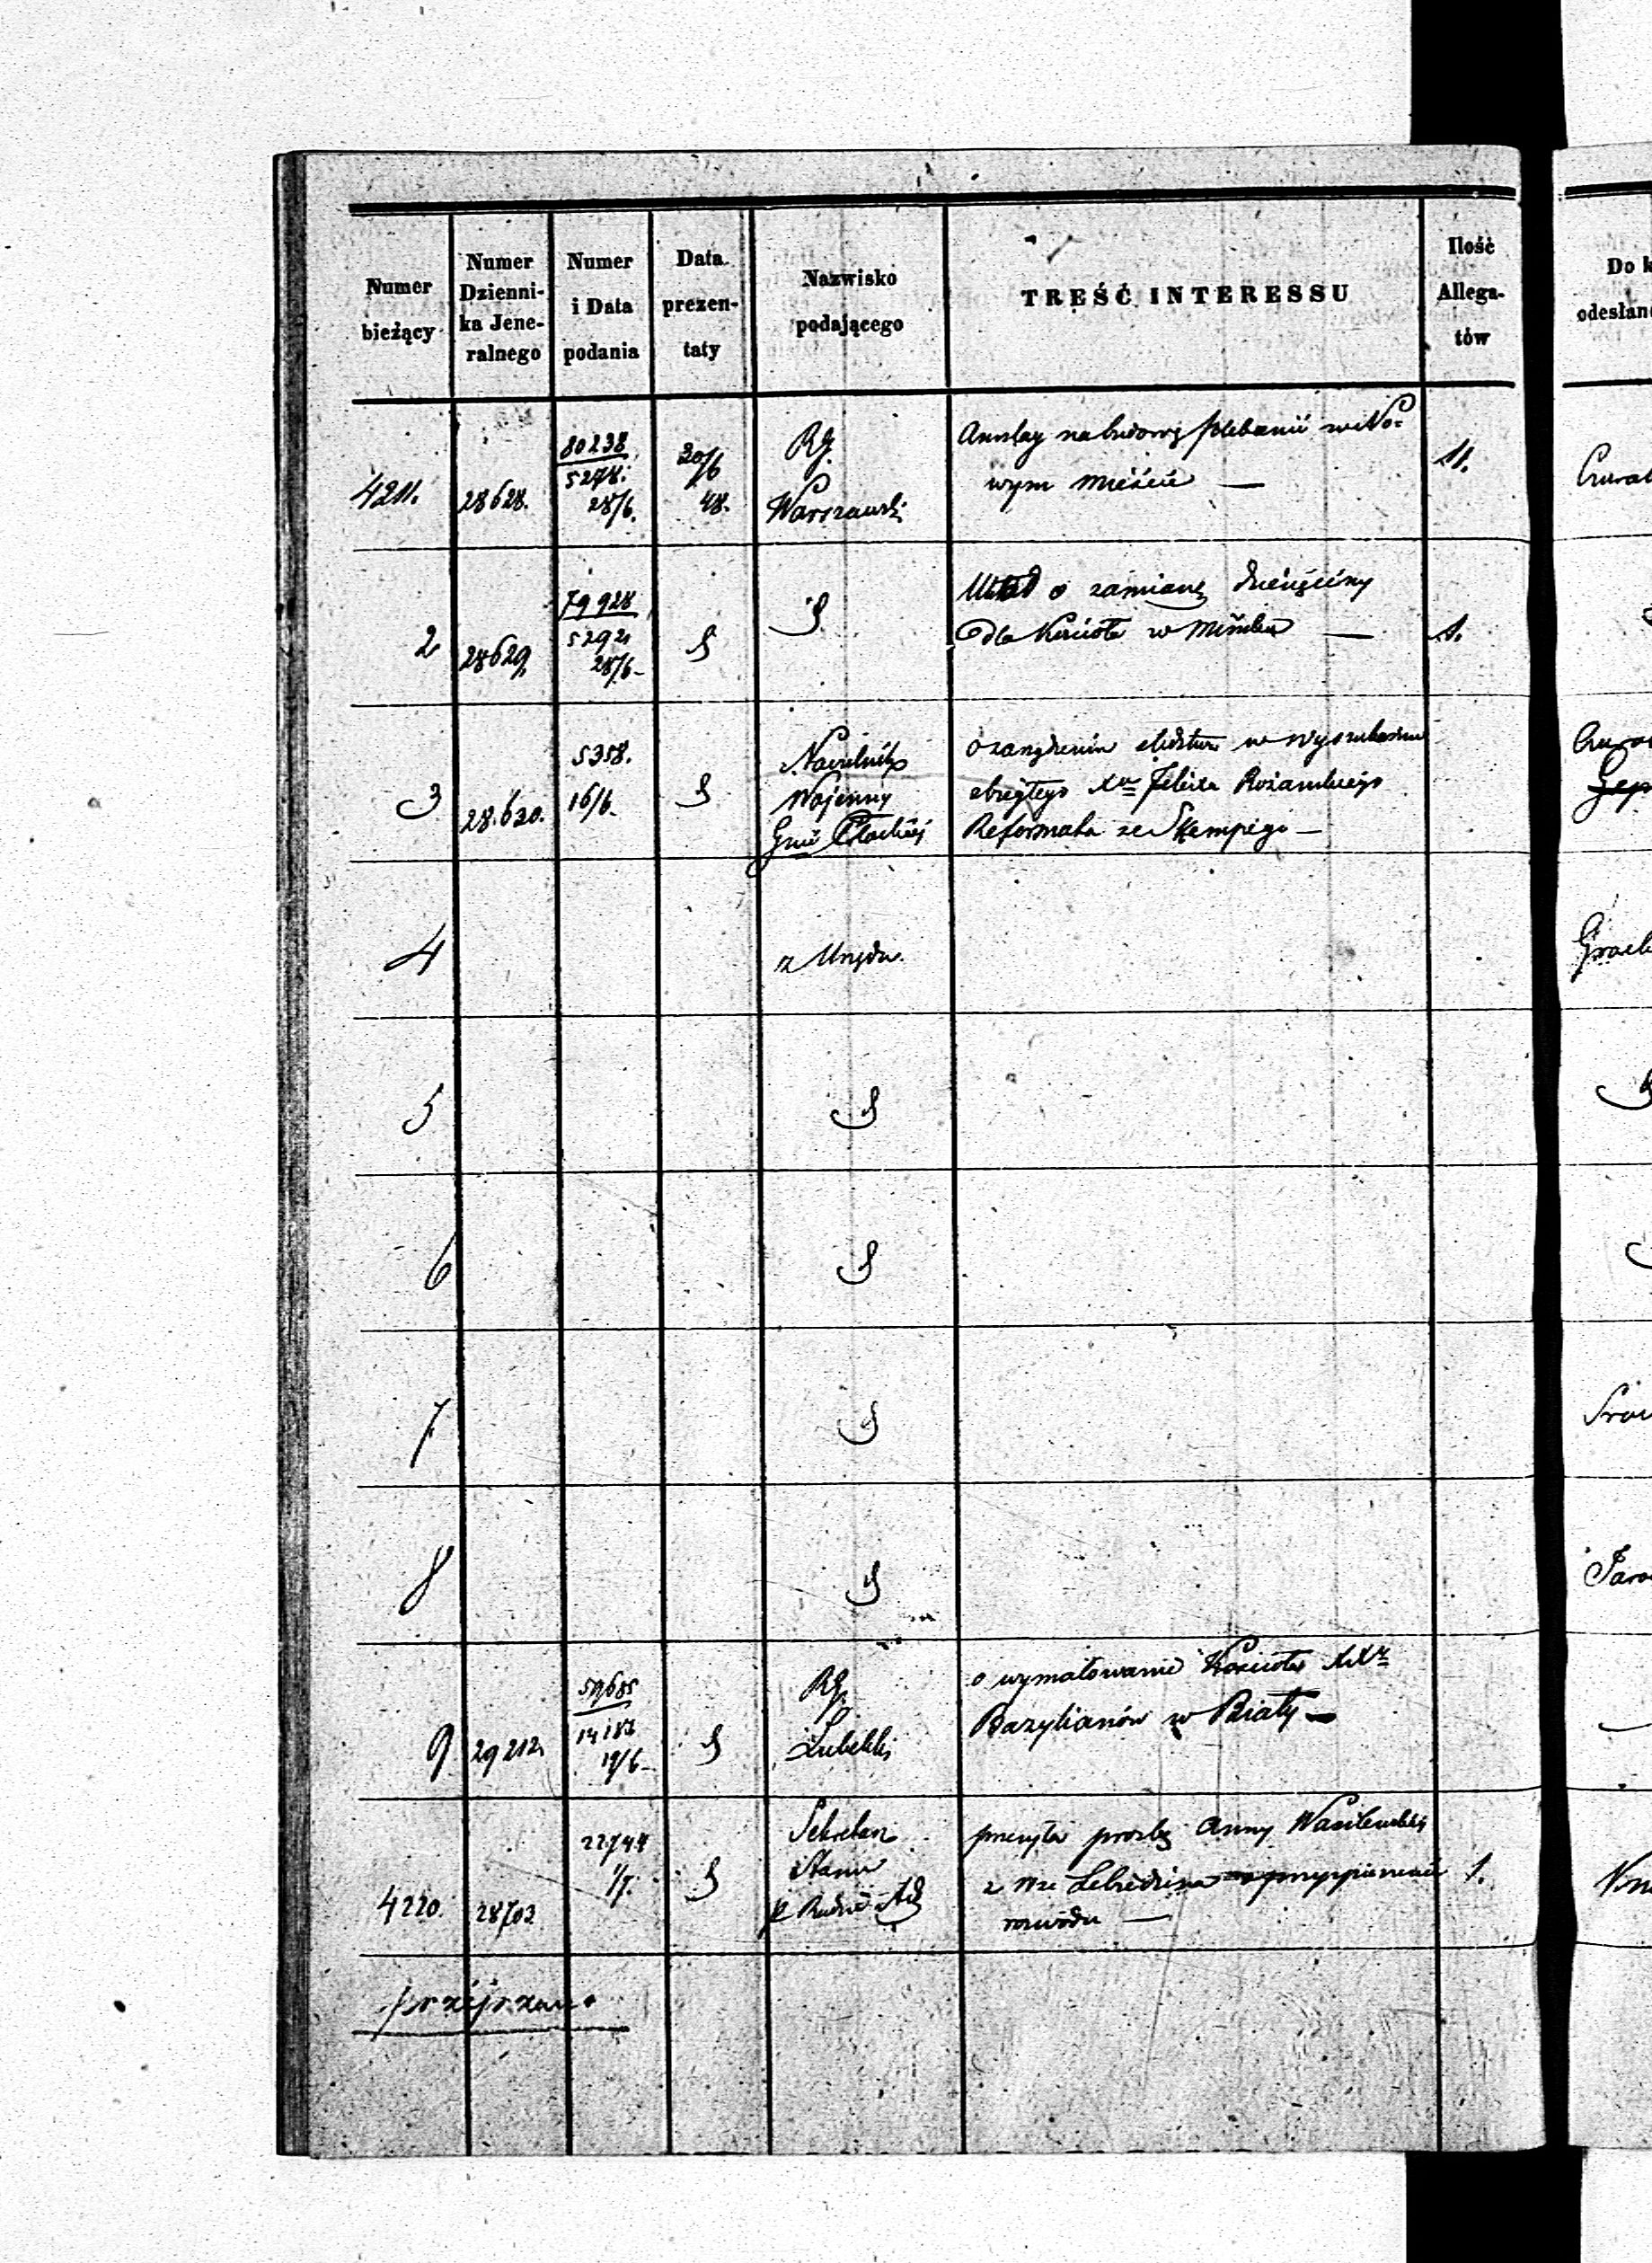 Numer bieżący
Numer Dzienni-ka Jene-ralnego
Numer i Data podania
Data prezen-taty
Nazwisko podającego
TREŚĆ INTERESSU
Ilość Allega-tów
Do k
odesłan
4211.
28628.
80238
5278.
28/6.
30/6
48.
RG.
Warszawski
Anszlag na budowę plebanii w No=
wym Mieście —
11.
2
28629
79928
5292
28/6
Układ o zamianę dziesięciny
dla Kościoła w Mińsku —
1.
3
28.630.
5358.
16/6.
Naczelnik
Wojenny
Gnii Płockiej
o zarządzenie śledztwa w wyszukaniu
zbiegłego Xa Felixa Rożańskiego
Reformata ze Skempego —
4
z Urzędu
5
6
7
8
9
29212
59685
14187
19/6
RG.
Lubelski
o wymalowanie Kościoła XX
Bazylianów w Biały —
4220.
28703
22744
1/7.
Sekretarz
Stanu
przesyła prośbę Anny Wasilewskiej
z
rozwodu —
1.
przejrzano